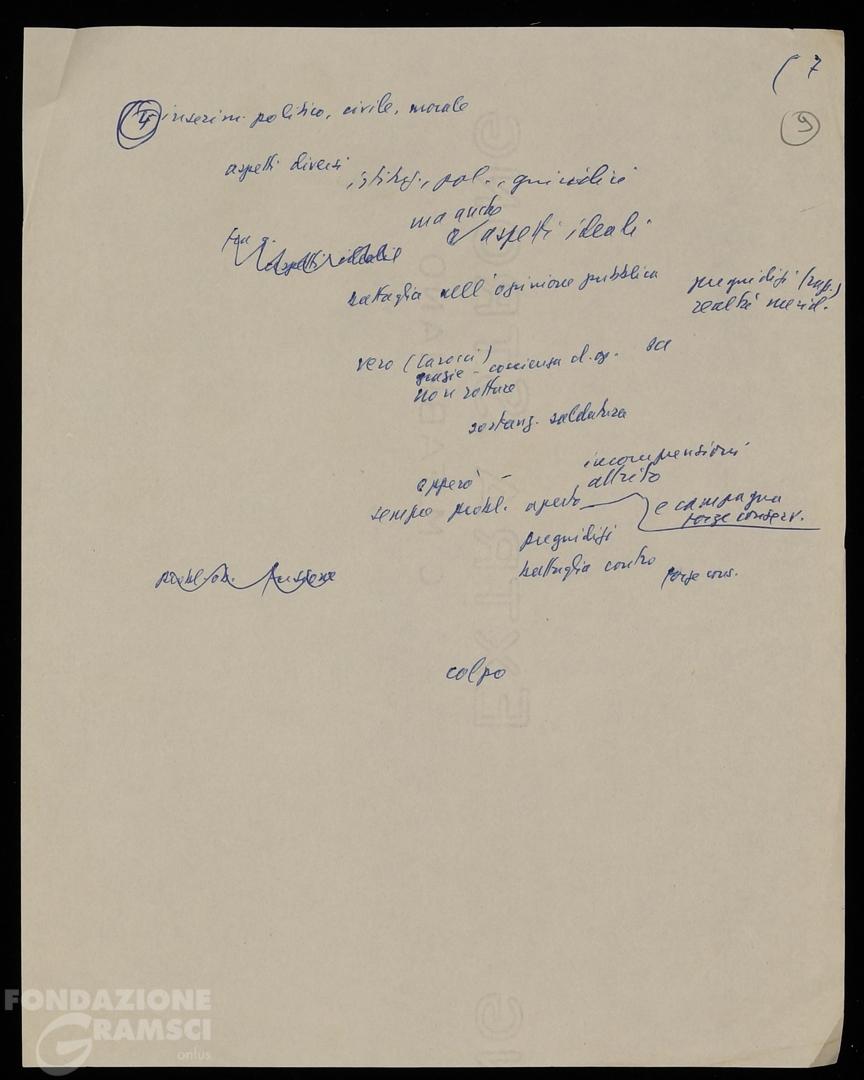 ( 7
9
4 inserim. politico, civile, morale
aspetti diversi
istituz., pol., giuridici
ma anche
e/aspetti ideali
battaglia nell'opinione pubblica
pregiudizi (rag.)
realtà merid.
vero (Carocci)
grazie - coscienza d. op.
non rotture
sostanz. saldatura
epperò -
incomprensioni
attrito
sempre probl. aperto
e campagna
forze conserv.
pregiudizi
battaglia contro
forze cons.
colpo
FONDAZIONE
GRAMSCI
onlus